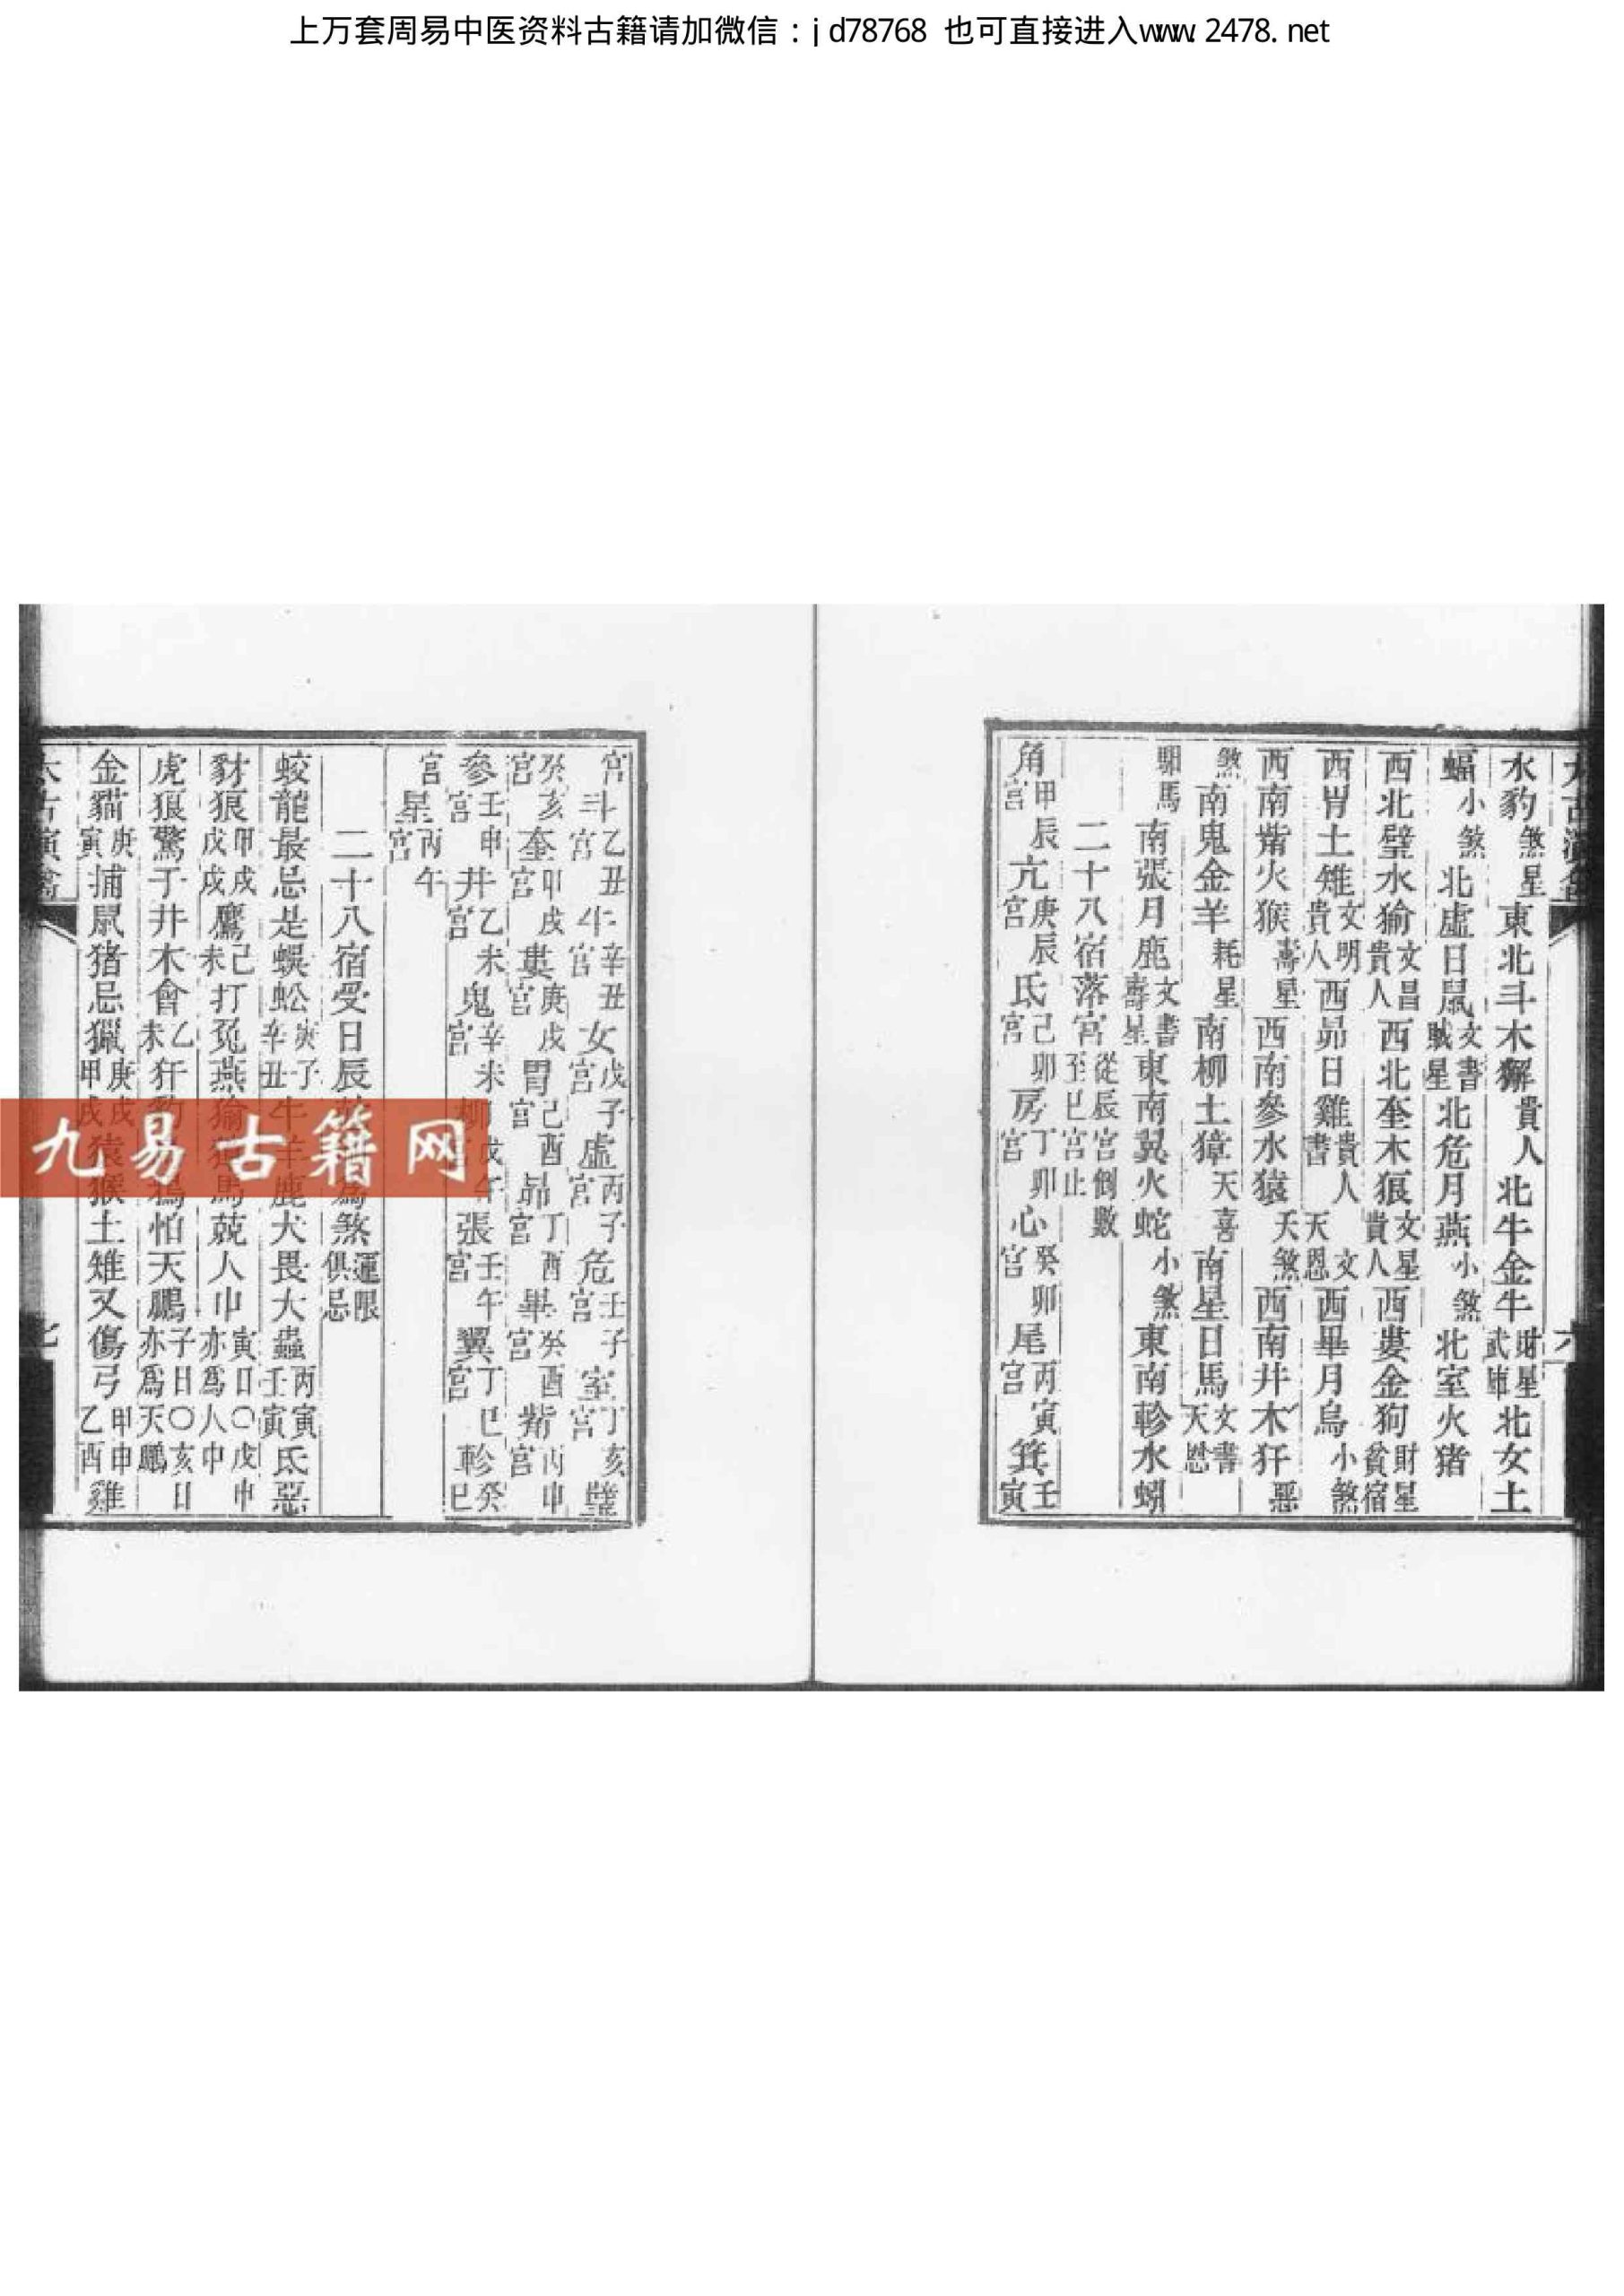 上万套周易中医资料古籍请加微信：jd78768 也可直接进入www.2478.net
水豹煞星東北斗木獬貴人北牛金牛財星武庫北女土
蝠小煞北虛日鼠文書賊星北危月燕小煞北室火猪
西北壁水㺄文昌貴人西北奎木狼文星貴人西婁金狗財星貧宿
西胃土雉文明貴人西昴日雞貴人文書天恩西畢月烏小煞
西南觜火猴壽星西南參水猿天煞西南井木犴惡
煞南鬼金羊耗星南柳土獐天喜南星日馬文書天愆
駟馬南張月鹿文書壽星東南翼火蛇小煞東南軫水蚓
二十八宿落宮從辰宮倒數至巳宮止
角甲辰宮亢庚辰宮氐己卯宮房丁卯宮心癸卯宮尾丙寅宮箕壬寅
宮斗乙丑宮牛辛丑宮女戊子宮虛丙子宮危壬子宮室丁亥宮壁
癸亥宮奎甲戌宮婁庚戌宮胃己酉宮昴丁酉宮畢癸酉宮觜丙申宮
參壬申宮井乙未宮鬼辛未宮柳戊午張壬午宮翼丁巳宮軫癸巳
宮星丙午宮
二十八宿受日辰為煞運限俱忌
蛟龍最忌是蜈蚣庚子辛丑牛羊鹿犬畏大蟲丙寅壬寅氐惡
豺狼甲戌戊戌鷹己未打兔燕㺄馬兢人巾寅日〇戊申亦爲人中
虎狼驚于井木會乙未犴豹怕天鵬子日〇亥日亦爲天鵬
金貓庚寅捕鼠猪忌獵庚戌甲戌猿猴土雉又傷弓甲申乙酉雞
九易古籍网